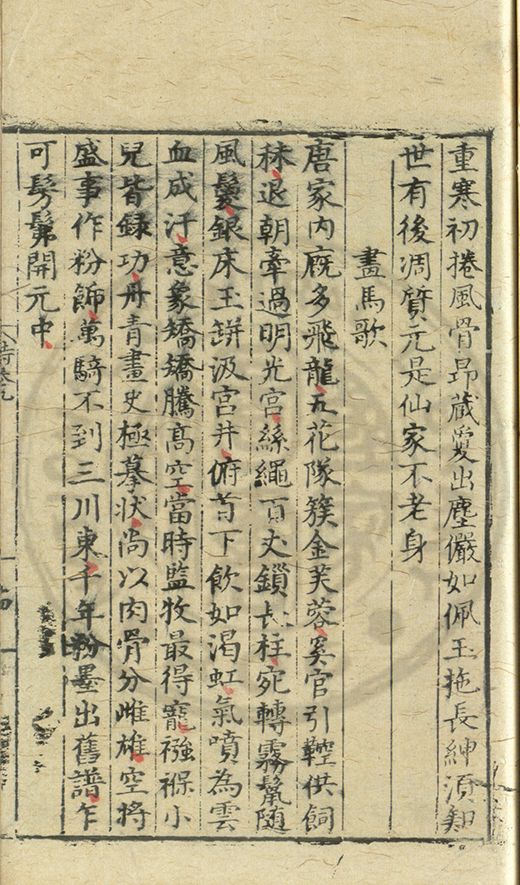 重寒初捲風骨昂藏夐出塵儼如佩玉拖長紳須知
世有後凋質元是仙家不老身
畫馬歌
唐家內廐多飛龍五花隊簇金芙蓉奚官引鞚供飼
秣退朝牽過明光宮絲繩百丈鎖長柱宛轉霧鬛隨
風鬟銀床玉缾汲宮井俯首下飲如渴虹氣噴為雲
血成汗意象矯矯騰高空當時監牧最得寵襁褓小
兒皆録功丹青畫史極摹狀尚以肉骨分雌雄空將
盛事作粉飾萬騎不到三川東千年粉墨出舊譜乍
可髣髴開元中